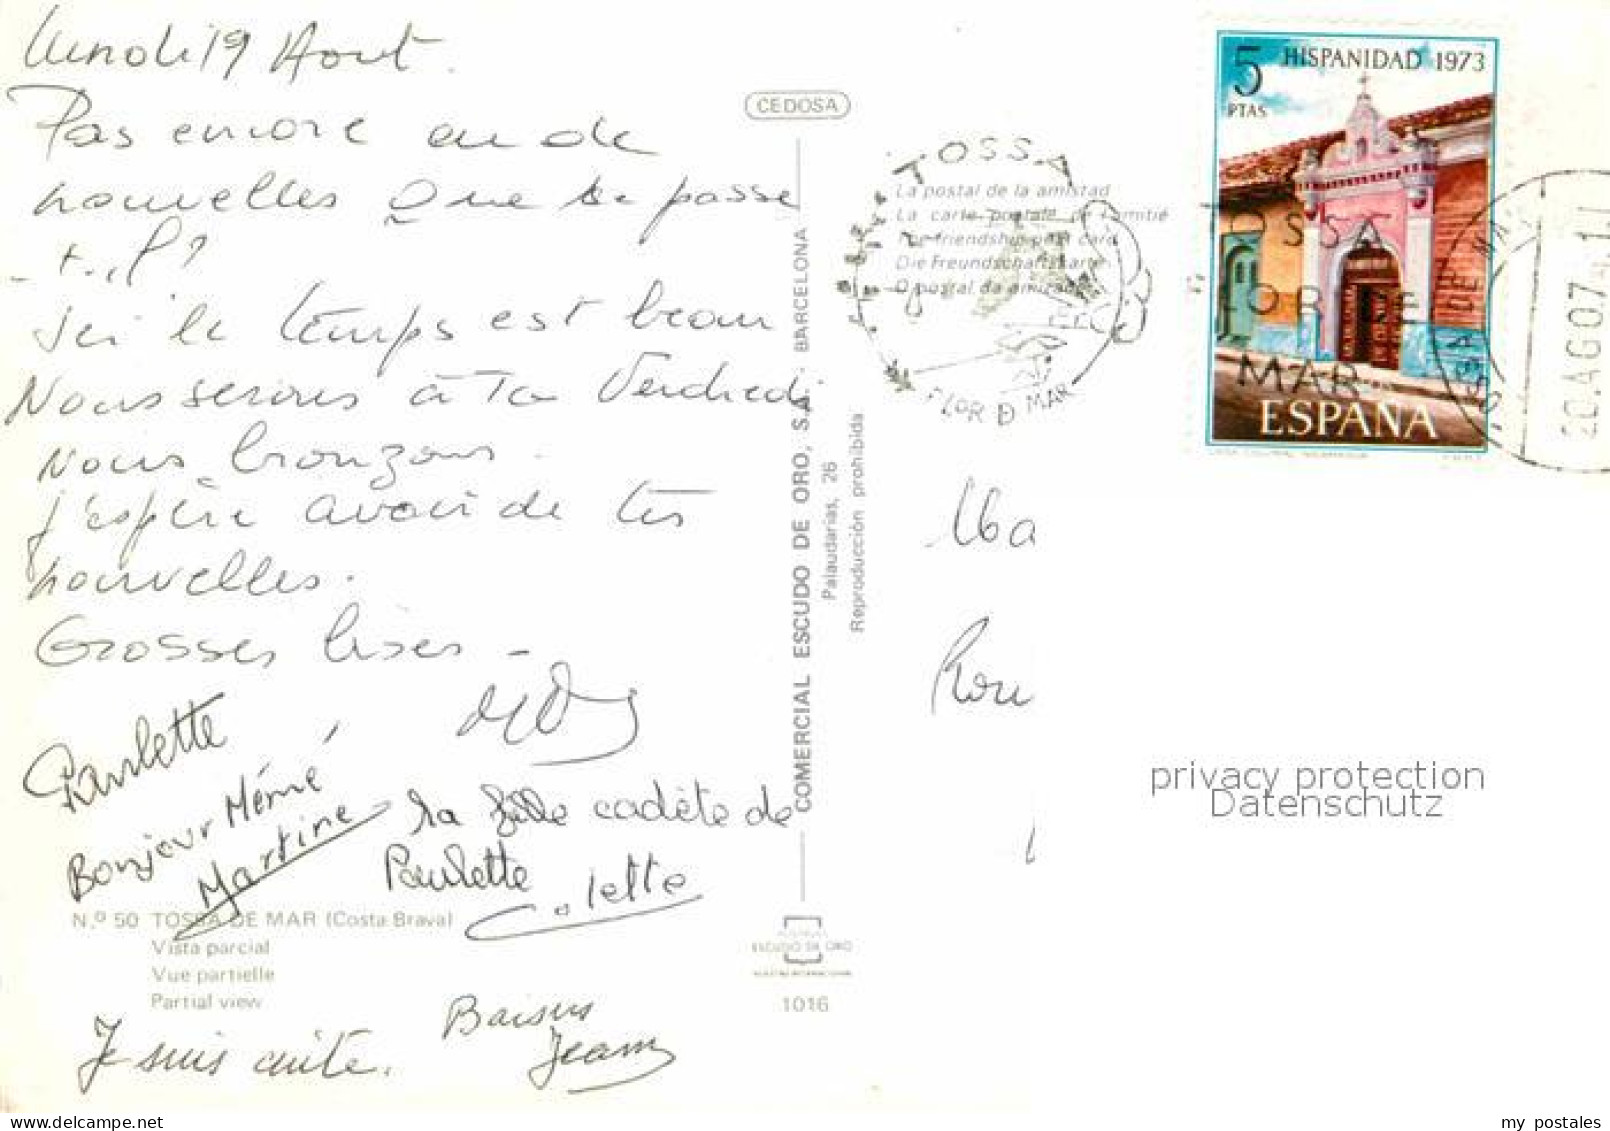 Lundi 19 Aout.
Pas encore eu de
nouvelles Que se passe
-t-il?
Ici le temps est beau
Nous serons à Vendredi
Nous bronzons.
J'espère avoir de tes
nouvelles.
Grosses bises -
Paulette
Bonjour Mémé
Martine
la fille cadète de
Paulette
Colette
N.º 50 TOSSA DE MAR (Costa Brava)
Vista parcial
Vue partielle
Partial view
Je suis cuite.
Baisers
Jeam
CEDOSA
COMERCIAL ESCUDO DE ORO, S.A. - BARCELONA
Palaudarias, 26
Reproducción prohibida
ESCUDO DE ORO
1016
TOSSA
La postal de la amistad
La carte postale de l'amitié
The friendship post card
Die Freundschaftskarte
O postal da amizade
FLOR D MAR
HISPANIDAD 1973
5
PTAS
ESPAÑA
TOSSA
FLOR DE
MAR
TOSSA DE MAR
20.AGO 74
Ma
Rou
privacy protection
Datenschutz
www.delcampe.net
my_postales